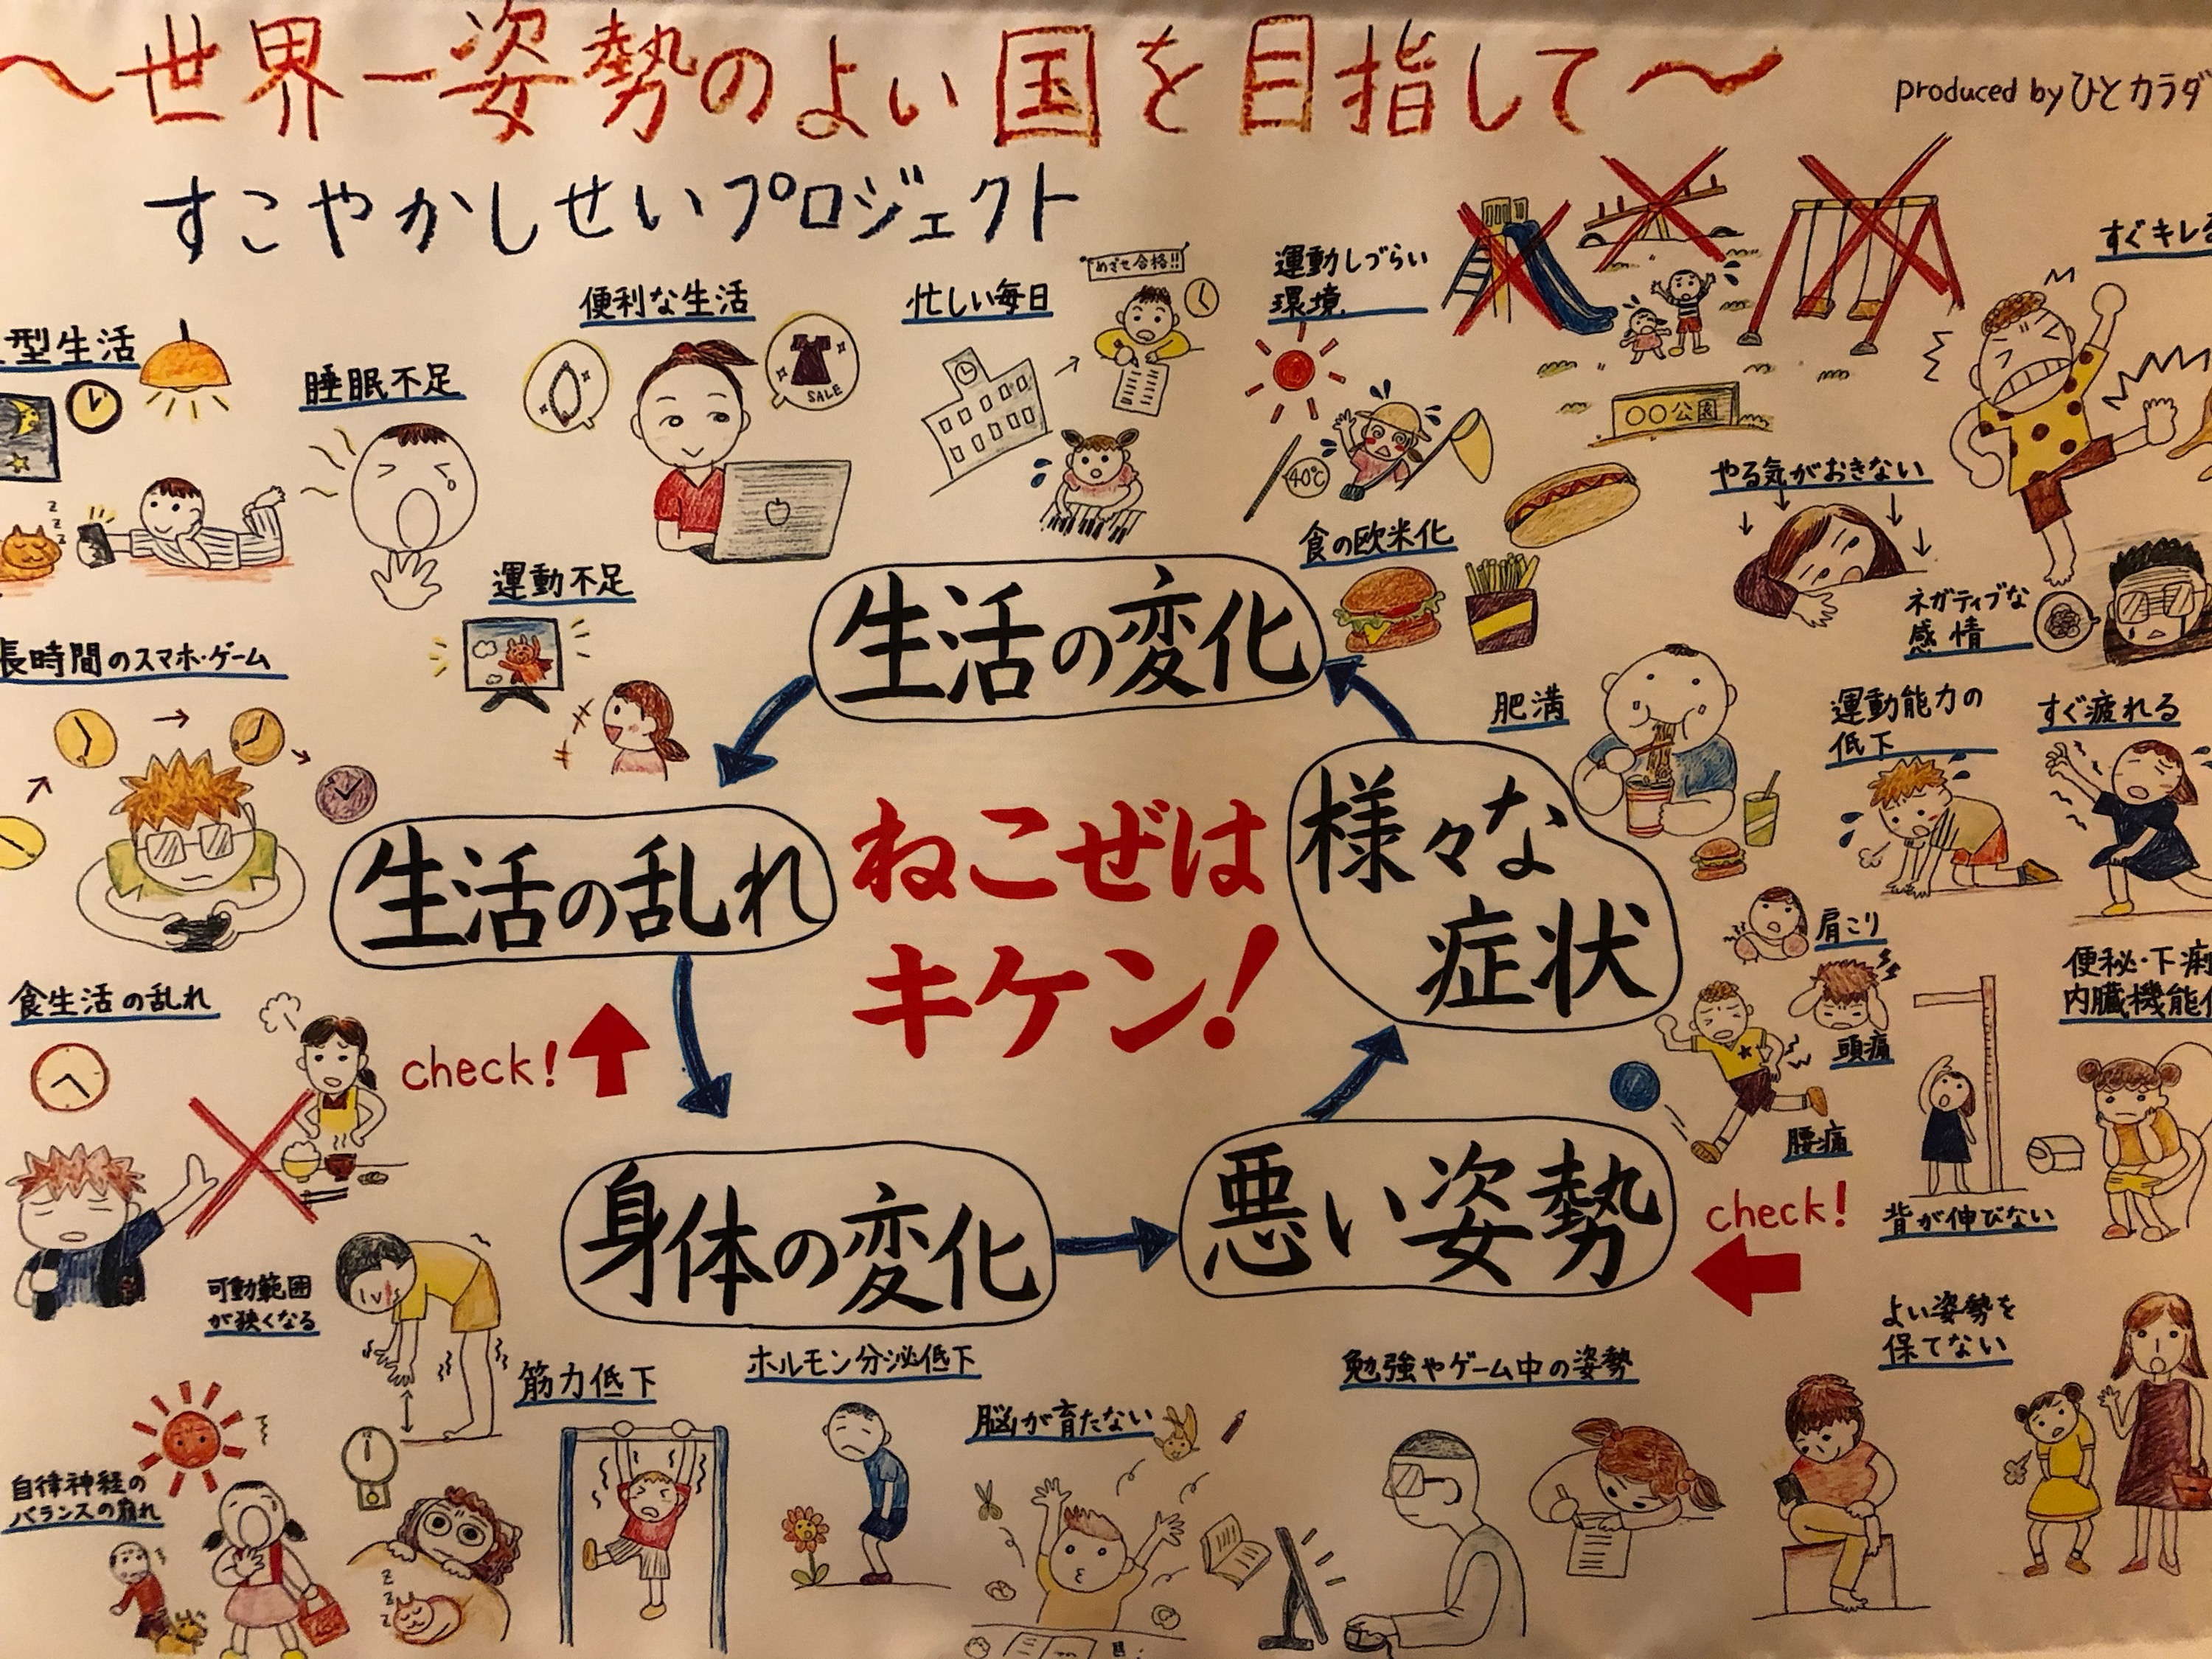 ～世界一姿勢のよい国を目指して～
produced by ひとカラダ
すこやかしせいプロジェクト
型生活
睡眠不足
便利な生活
SALE
忙しい毎日
めざせ合格!!
運動しづらい
環境
40℃
〇〇公園
すぐキレる
やる気がおきない
食の欧米化
ネガティブな
感情
運動不足
長時間のスマホ・ゲーム
生活の変化
肥満
運動能力の
低下
すぐ疲れる
生活の乱れ
ねこぜは
キケン!
様々な
症状
肩こり
頭痛
腰痛
便秘・下痢
内臓機能
背が伸びない
食生活の乱れ
check!
身体の変化
悪い姿勢
check!
可動範囲
が狭くなる
筋力低下
ホルモン分泌低下
脳が育たない
勉強やゲーム中の姿勢
よい姿勢を
保てない
自律神経の
バランスの崩れ
z
z
z
z
z
z